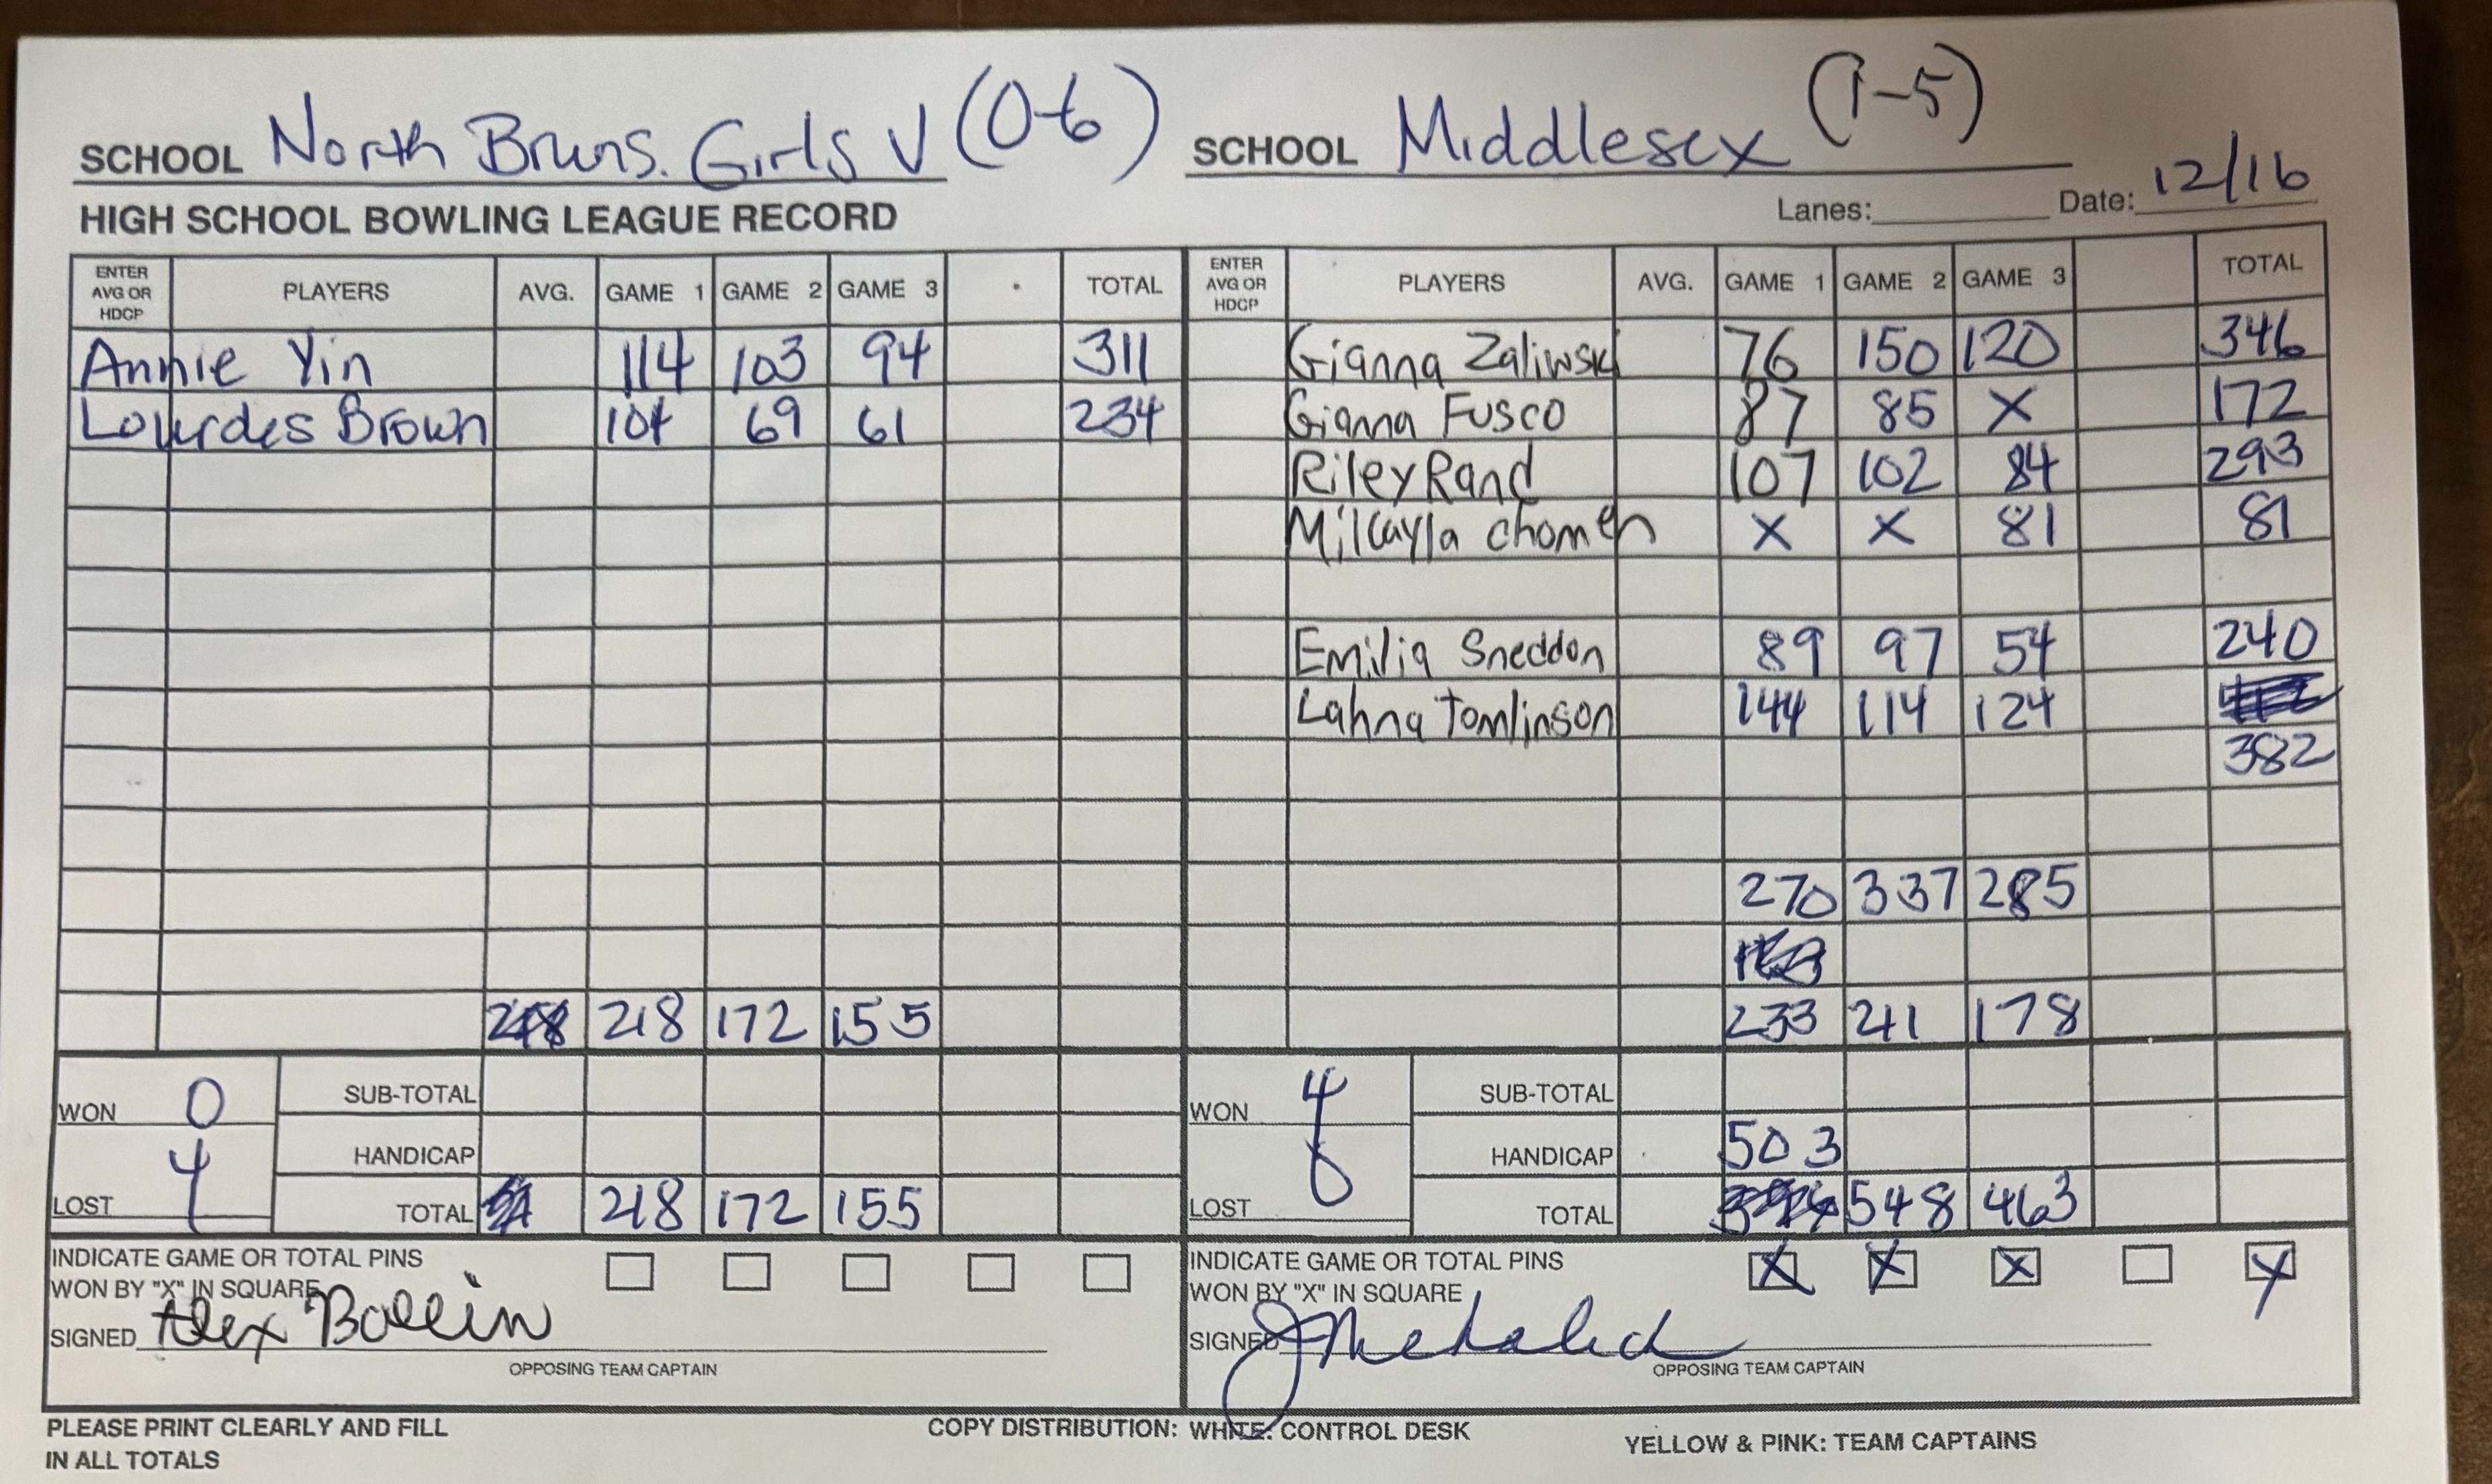 SCHOOL North Bruns. Girls V (0-6) SCHOOL Middlesex (1-5)
HIGH SCHOOL BOWLING LEAGUE RECORD Lanes: Date: 12/16
ENTER AVG OR HDCP PLAYERS AVG. GAME 1 GAME 2 GAME 3 TOTAL ENTER AVG OR HDCP PLAYERS AVG. GAME 1 GAME 2 GAME 3 TOTAL
Annie Yin 114 103 94 311 Gianna Zaliwski 76 150 120 346
Lourdes Brown 104 69 61 234 Gianna Fusco 87 85 X 172
Riley Rand 107 102 84 293
Mikayla X X 81 81
Emilia Sneddon 89 97 54 240
Lahna Tomlinson 144 114 124
382
270 337 285
218 172 155 233 211 178
WON 0 SUB-TOTAL WON 4 SUB-TOTAL
HANDICAP HANDICAP 503
LOST 4 TOTAL 218 172 155 LOST 0 TOTAL 548 463
INDICATE GAME OR TOTAL PINS INDICATE GAME OR TOTAL PINS X X X X
WON BY "X" IN SQUARE WON BY "X" IN SQUARE
SIGNED Alex Bollin SIGNED
OPPOSING TEAM CAPTAIN OPPOSING TEAM CAPTAIN
PLEASE PRINT CLEARLY AND FILL COPY DISTRIBUTION: WHITE: CONTROL DESK YELLOW & PINK: TEAM CAPTAINS
IN ALL TOTALS